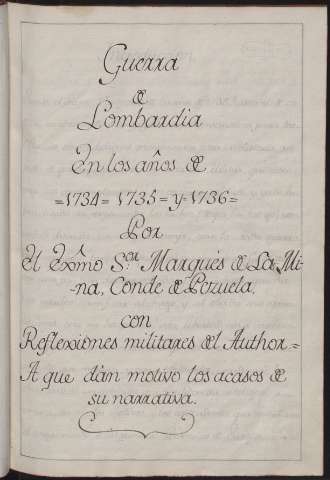 Guerra
de
Lombardia
En los años de
=1734= 1735= y 1736=
Por
El Exmo Sor. Marqués de La Mi-
na, Conde de Pezuela,
con
Reflexsiones militares del Author=
A que dàn motivo los acasos de
su narrativa.